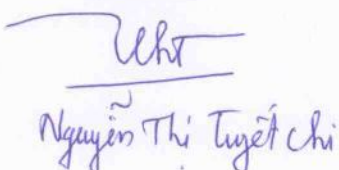 Nguyễn Thị Tuyết Chi